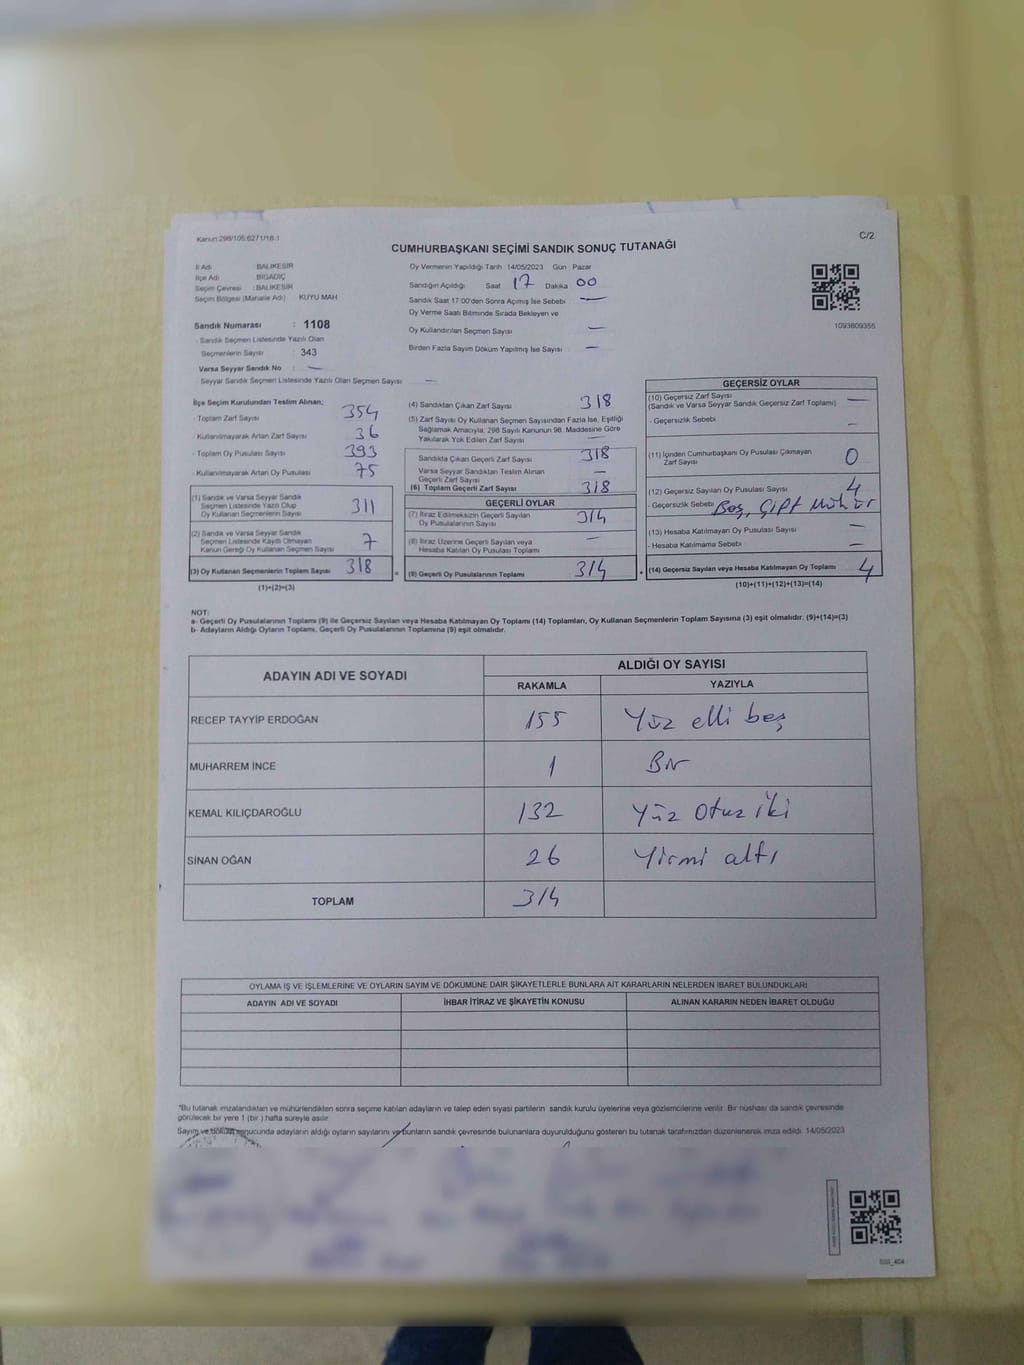 Kanun:298/105;6271/18-1
C/2
CUMHURBAŞKANI SEÇİMİ SANDIK SONUÇ TUTANAĞI
İl Adı BALIKESİR
İlçe Adı BİGADİÇ
Seçim Çevresi : BALIKESİR
Seçim Bölgesi (Mahalle Adı) KUYU MAH
Sandık Numarası : 1108
- Sandık Seçmen Listesinde Yazılı Olan
Seçmenlerin Sayısı : 343
Varsa Seyyar Sandık No : —
- Seyyar Sandık Seçmen Listesinde Yazılı Olan Seçmen Sayısı : —
Oy Vermenin Yapıldığı Tarih 14/05/2023 Gün Pazar
Sandığın Açıldığı Saat 17 Dakika 00
Sandık Saat 17:00'den Sonra Açılmış İse Sebebi : —
Oy Verme Saati Bitiminde Sırada Bekleyen ve
Oy Kullandırılan Seçmen Sayısı —
Birden Fazla Sayım Döküm Yapılmış İse Sayısı : —
1093809355
İlçe Seçim Kurulundan Teslim Alınan;
- Toplam Zarf Sayısı 354
- Kullanılmayarak Artan Zarf Sayısı 36
- Toplam Oy Pusulası Sayısı 393
- Kullanılmayarak Artan Oy Pusulası 75
(1) Sandık ve Varsa Seyyar Sandık
Seçmen Listesinde Yazılı Olup
Oy Kullanan Seçmenlerin Sayısı 311
(2) Sandık ve Varsa Seyyar Sandık
Seçmen Listesinde Kayıtlı Olmayan
Kanun Gereği Oy Kullanan Seçmen Sayısı 7
(3) Oy Kullanan Seçmenlerin Toplam Sayısı 318 =
(1)+(2)=(3)
(4) Sandıktan Çıkan Zarf Sayısı 318
(5) Zarf Sayısı Oy Kullanan Seçmen Sayısından Fazla İse, Eşitliği
Sağlamak Amacıyla, 298 Sayılı Kanunun 98. Maddesine Göre
Yakılarak Yok Edilen Zarf Sayısı —
Sandıkta Çıkan Geçerli Zarf Sayısı 318
Varsa Seyyar Sandıktan Teslim Alınan
Geçerli Zarf Sayısı —
(6) Toplam Geçerli Zarf Sayısı 318
GEÇERLİ OYLAR
(7) İtiraz Edilmeksizin Geçerli Sayılan
Oy Pusulalarının Sayısı 314
(8) İtiraz Üzerine Geçerli Sayılan veya
Hesaba Katılan Oy Pusulası Toplamı —
(9) Geçerli Oy Pusulalarının Toplamı 314 +
GEÇERSİZ OYLAR
(10) Geçersiz Zarf Sayısı
(Sandık ve Varsa Seyyar Sandık Geçersiz Zarf Toplamı) —
- Geçersizlik Sebebi —
(11) İçinden Cumhurbaşkanı Oy Pusulası Çıkmayan
Zarf Sayısı 0
(12) Geçersiz Sayılan Oy Pusulası Sayısı 4
- Geçersizlik Sebebi Boş, Çift Mühür
(13) Hesaba Katılmayan Oy Pusulası Sayısı —
- Hesaba Katılmama Sebebi —
(14) Geçersiz Sayılan veya Hesaba Katılmayan Oy Toplamı 4
(10)+(11)+(12)+(13)=(14)
NOT:
a- Geçerli Oy Pusulalarının Toplamı (9) ile Geçersiz Sayılan veya Hesaba Katılmayan Oy Toplamı (14) Toplamları, Oy Kullanan Seçmenlerin Toplam Sayısına (3) eşit olmalıdır. (9)+(14)=(3)
b- Adayların Aldığı Oyların Toplamı, Geçerli Oy Pusulalarının Toplamına (9) eşit olmalıdır.
ADAYIN ADI VE SOYADI ALDIĞI OY SAYISI
RAKAMLA YAZIYLA
RECEP TAYYİP ERDOĞAN 155 Yüz elli beş
MUHARREM İNCE 1 Bir
KEMAL KILIÇDAROĞLU 132 Yüz Otuz iki
SİNAN OĞAN 26 Yirmi altı
TOPLAM 314
OYLAMA İŞ VE İŞLEMLERİNE VE OYLARIN SAYIM VE DÖKÜMÜNE DAİR ŞİKAYETLERLE BUNLARA AİT KARARLARIN NELERDEN İBARET BULUNDUKLARI
ADAYIN ADI VE SOYADI İHBAR İTİRAZ VE ŞİKAYETİN KONUSU ALINAN KARARIN NEDEN İBARET OLDUĞU
"Bu tutanak imzalandıktan ve mühürlendikten sonra seçime katılan adayların ve talep eden siyasi partilerin sandık kurulu üyelerine veya gözlemcilerine verilir. Bir nüshası da sandık çevresinde
görülecek bir yere 1 (bir) hafta süreyle asılır.
Sayım ve döküm sonucunda adayların aldığı oyların sayılarını ve bunların sandık çevresinde bulunanlara duyurulduğunu gösteren bu tutanak tarafımızdan düzenlenerek imza edildi. 14/05/2023